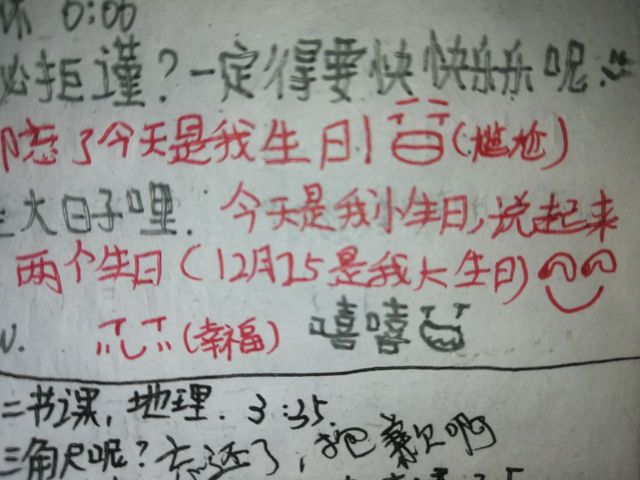 0:00
必拒谨?一定得要快快乐乐呢
忘了今天是我生日!(尴尬)
大日子哩. 今天是我小生日,说起来
两个生日(12月25是我大生日)
(幸福) 嘻嘻
二书课,地理. 3:35.
三角尺呢?忘还了,抱歉啊